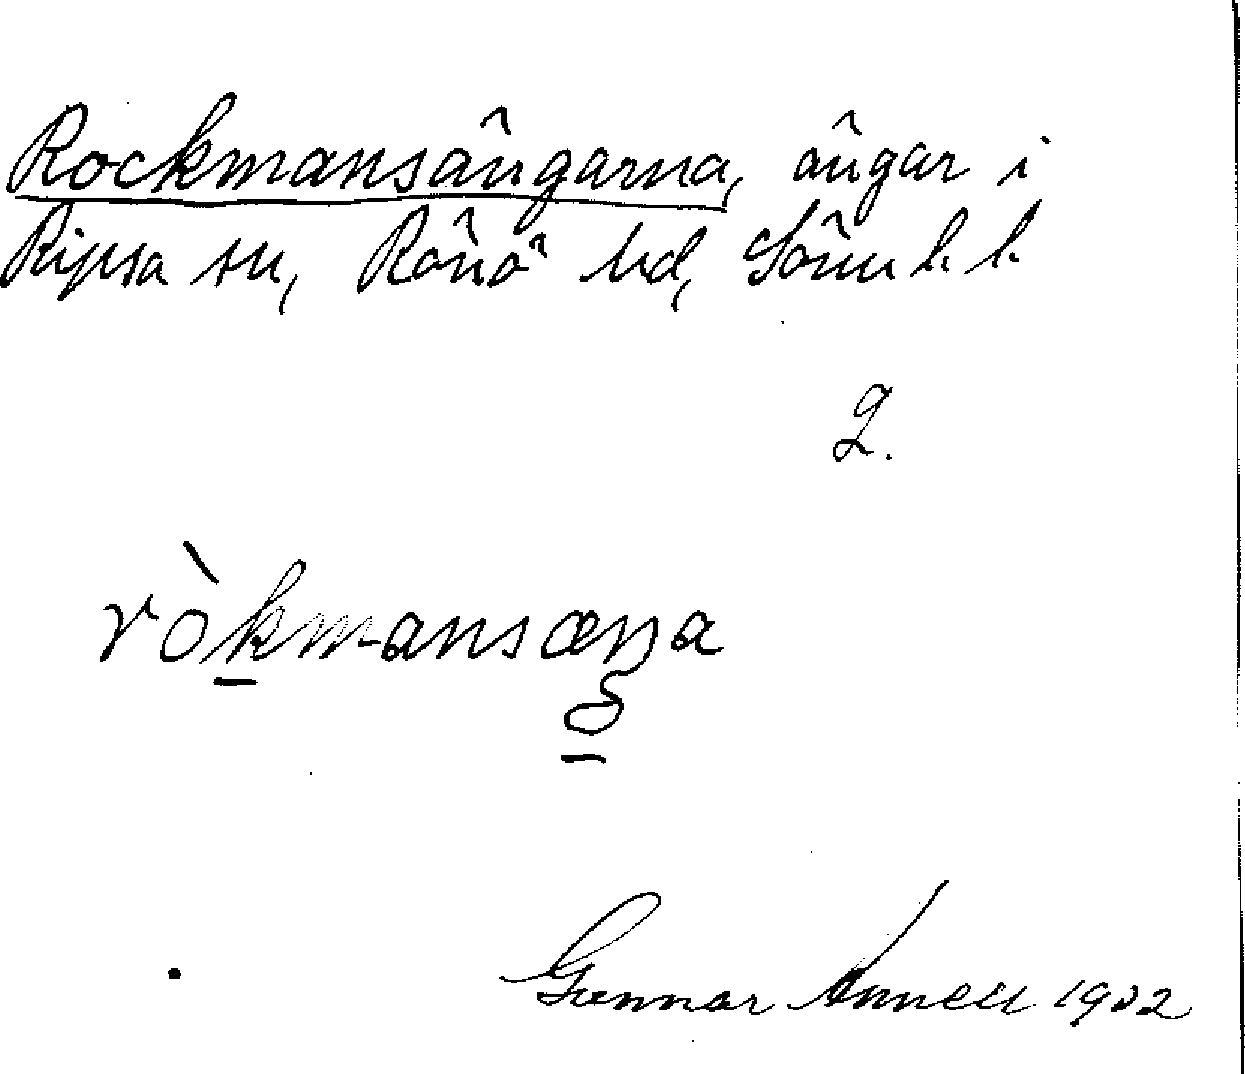 Rockmansängarna, ängar i
Ripsa sn, Rönö hd, Sörml. l.
2.
ròkmansæŋa
Gunnar Annell 1932